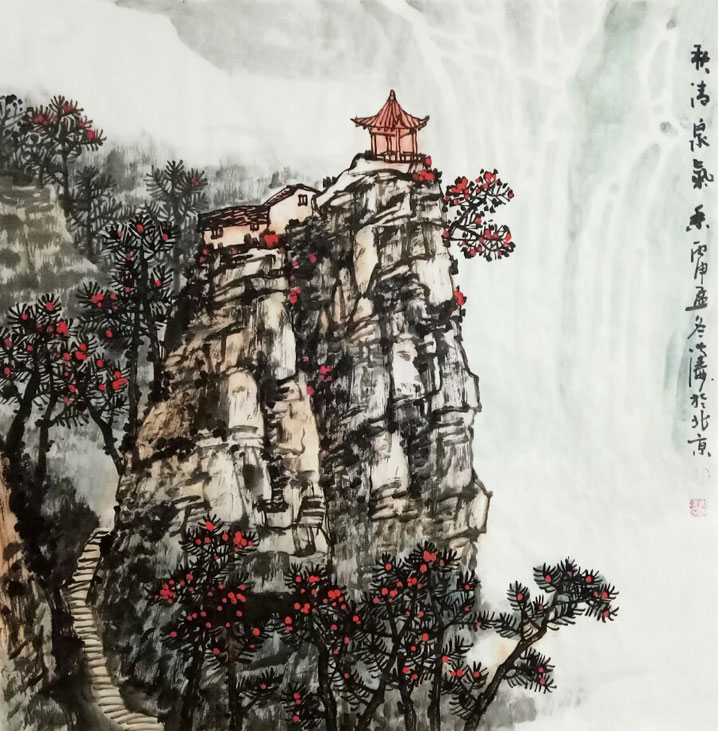 秋清泉氣香丙申孟冬江濤於北京